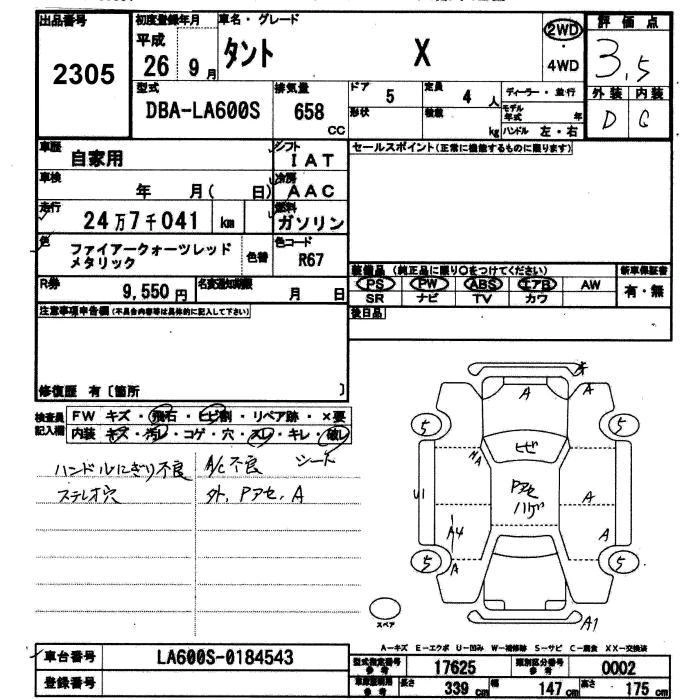 出品番号 初度登録年月 車名・グレード 評価点
2305 平成 26年 9月 タント X 2WD・4WD 3.5
型式 排気量 ドア 定員 ディーラー・並行 外装 内装
DBA-LA600S 658 CC 5 4人 モデル年式 年 D C
形状 積載 kg ハンドル 左・右
車歴 自家用 シフト IAT セールスポイント(正常に機能するものに限ります)
車検 年 月( 日) 冷房 AAC
走行 24万7千041 km 燃料 ガソリン
色 ファイアークォーツレッド 色替 色コード
メタリック R67
装備品 (純正品に限り○をつけてください) 新車保証書
R券 9,550円 名変通知期限 月 日 PS PW ABS エアB AW 有・無
SR ナビ TV カワ
注意事項申告欄(不具合内容等は具体的に記入して下さい) 後日品
修復歴 有〔箇所 〕
検査員 FW キズ・飛石・ヒビ割・リペア跡・×要
記入欄 内装 キズ・汚レ・コゲ・穴・スレ・キレ・破レ
シート
ハンドルにぎり不良 A/C不良
ステレオ穴 外、Pアセ、A
A A
5 5
ヒビ
U1 Pアセ A
ハゲ
A4 A
5 A 5
スペア A1
A-キズ E-エクボ U-凹み W-補修跡 S-サビ C-腐食 XX-交換済
車台番号 LA600S-0184543 型式指定番号 参考 17625 類別区分番号 参考 0002
登録番号 参考 長さ 339 cm 幅 147 cm 高さ 175 cm